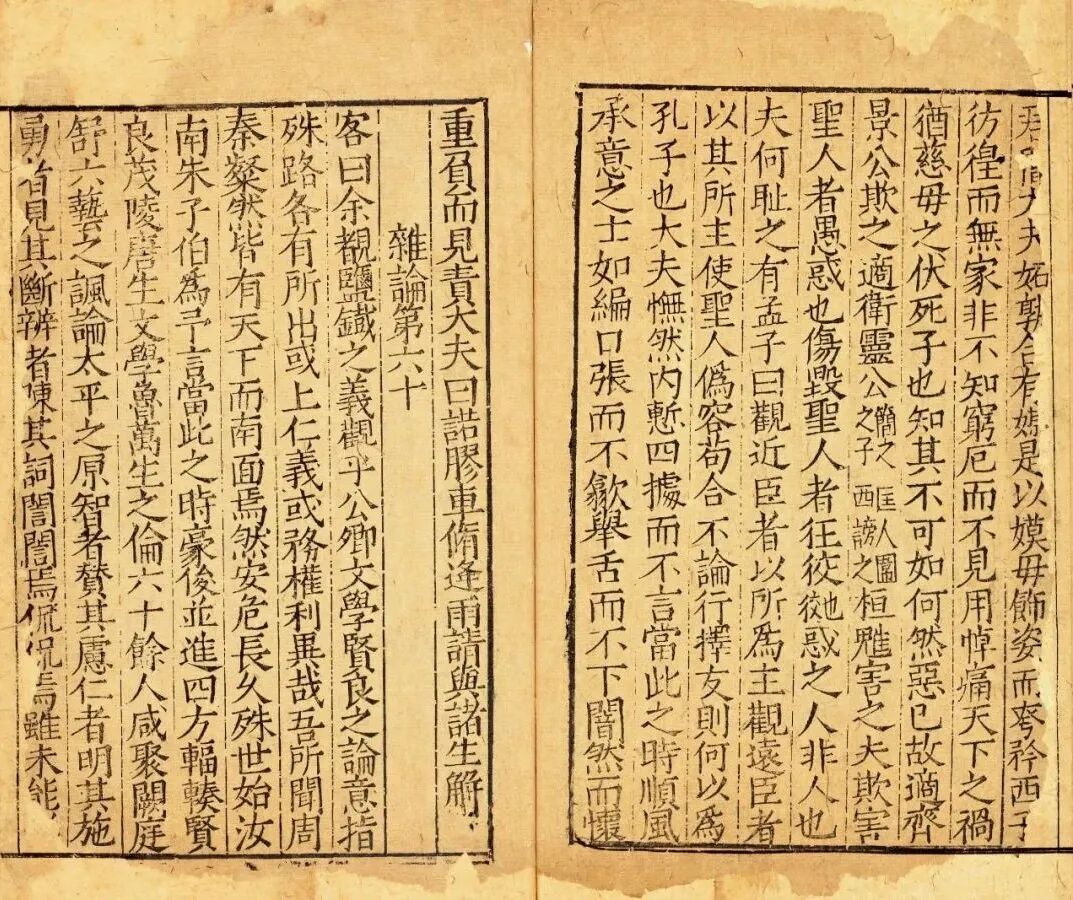 大夫妬孰合有是以嫫毋飾姿而夸矜西子
彷徨而無家非不知窮厄而不見用悼痛天下之禍
猶慈毋之伏死子也知其不可如何然惡已故適齊
景公欺之適衛靈公簡之匡人圍之子西謗之桓魋害之夫欺害
聖人者愚惑也傷毀聖人者狂狡也狡惑之人非人也
夫何耻之有孟子曰觀近臣者以所為主觀遠臣者
以其所主使聖人僞容苟合不論行擇友則何以為
孔子也大夫憮然内慙四據而不言當此之時順風
承意之士如編口張而不歙舉舌而不下闇然而懷
重負而見責大夫曰諾膠車脩逢雨請與諸生解
雜論第六十
客曰余覩鹽鐵之義觀乎公卿文學賢良之論意指
殊路各有所出或上仁義或務權利異哉吾所聞周
秦粲然皆有天下而南面焉然安危長久殊世始汝
南朱子伯為予言當此之時豪俊並進四方輻輳賢
良茂陵唐生文學魯萬生之倫六十餘人咸聚闕庭
舒六藝之諷論太平之原智者贊其慮仁者明其施
勇者見其斷辨者陳其詞誾誾焉侃侃焉雖未能